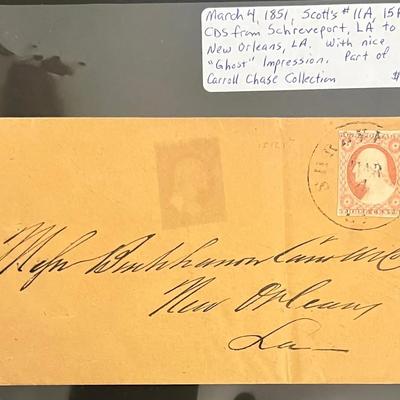 March 4, 1851, Scott's # 11A, 15
CDS from Schreveport, LA to
New Orleans, LA. With nice
"Ghost" Impression. Part of
Carroll Chase Collection $
SHREVE
MAR
THREE CENTS
New Orleans
La